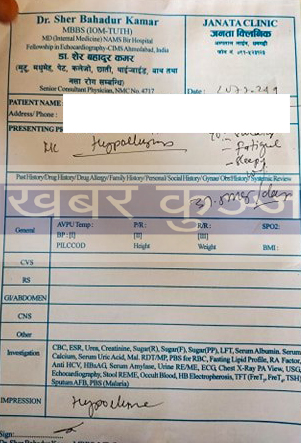 Dr. Sher Bahadur Kamar
MBBS (IOM-TUTH)
MD (Internal Medicine) NAMS Bir Hospital
Fellowship in Echocardiography-CIMS Ahmedabad, India
डा. शेर बहादुर कमर
(मुटु, मधुमेह, पेट, कलेजो, छाती, थाईराईड, बाथ तथा
नशा रोग सम्बन्धि)
Senior Consultant Physician, NMC No. 4717
JANATA CLINIC
जनता क्लिनिक
Date :
PATIENT NAME
Address/ Phone :
PRESENTING
Fatigue
Sleepy
Past History/Drug History/Drug Allergy/Family History/Personal/Social History/Gynae/Obs History/Systemic Review
खबर कुञ्ज
General
AVPU Temp : P/R : R/R : SPO2:
BP : [I] [II] [III]
PILCCOD Height Weight BMI :
CVS
RS
GI/ABDOMEN
CNS
Other
Investigation
CBC, ESR, Urea, Creatinine, Sugar(R), Sugar(F), Sugar(PP), LFT, Serum Albumin, Serum
Calcium, Serum Uric Acid, Mal. RDT/MP, PBS for RBC, Fasting Lipid Profile, RA Factor,
Anti HCV, HBsAG, Serum Amylase, Urine RE/ME, ECG, Chest X-Ray PA View, USG,
Echocardiography, Stool REME, Occult Blood, HB Electropheresis, TFT (FreT3, FreT4, TSH)
Sputum AFB, PBS (Malaria)
IMPRESSION
Sign: